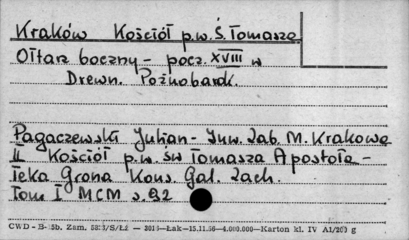 Kraków Kościół p.w. Ś. Tomasza
Ołtarz boczny – pocz. XVIII w
Drewn. Późnobarok.
Pagaczewski Julian – Inw. Zab. M. Krakowa
II Kościół p.w. św Tomasza Apostoła –
Teka Grona Kons. Gal. Zach.
Tom I MCM s. 92
CWD - B- Zam. /S/Łź — Łak—15.11.56—4.000.000—Karton kl. IV A1/ g